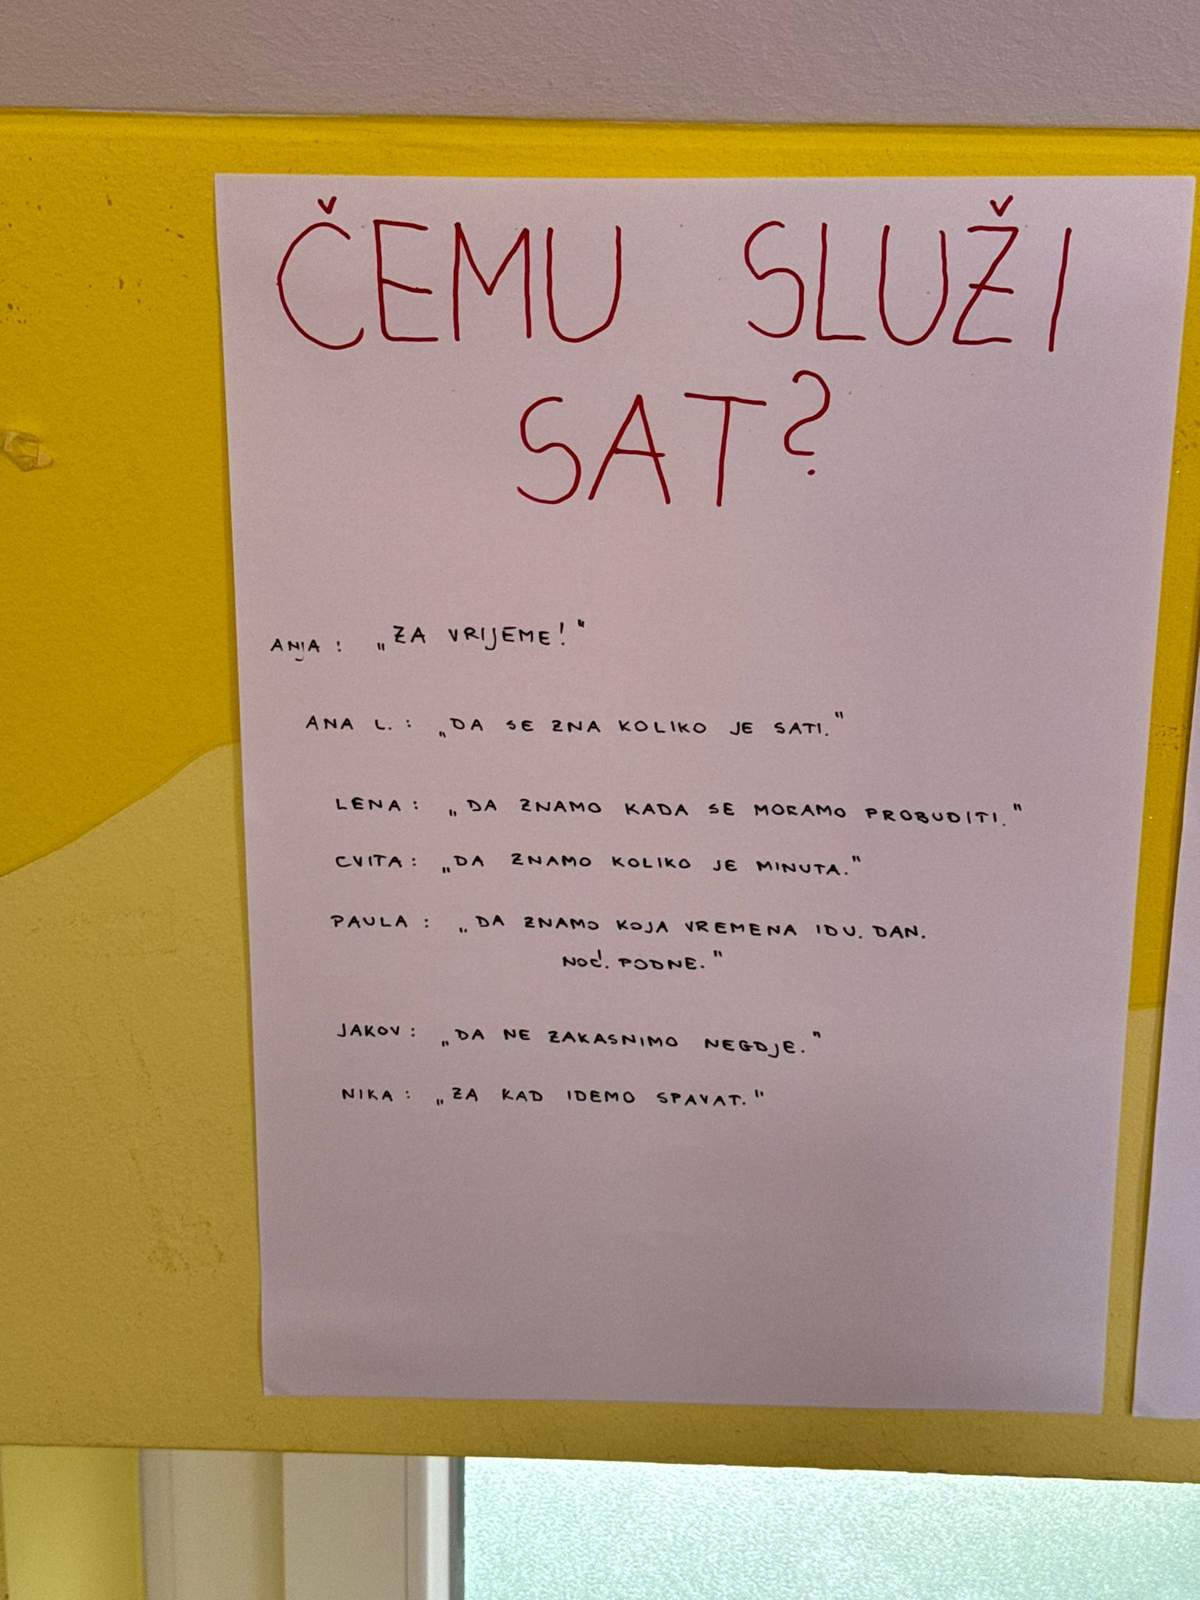 ČEMU SLUŽI
SAT?
ANJA: „ZA VRIJEME!"
ANA L.: „DA SE ZNA KOLIKO JE SATI."
LENA: „DA ZNAMO KADA SE MORAMO PROBUDITI."
CVITA: „DA ZNAMO KOLIKO JE MINUTA."
PAULA: „DA ZNAMO KOJA VREMENA IDU. DAN.
NOĆ. PODNE."
JAKOV: „DA NE ZAKASNIMO NEGDJE."
NIKA: „ZA KAD IDEMO SPAVAT."